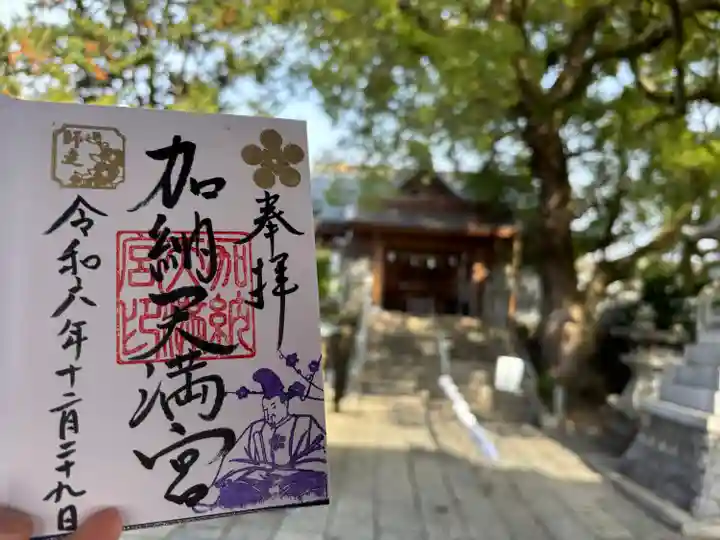 奉拝
加納天満宮
加納天満宮印
師走
令和六年十二月二十九日